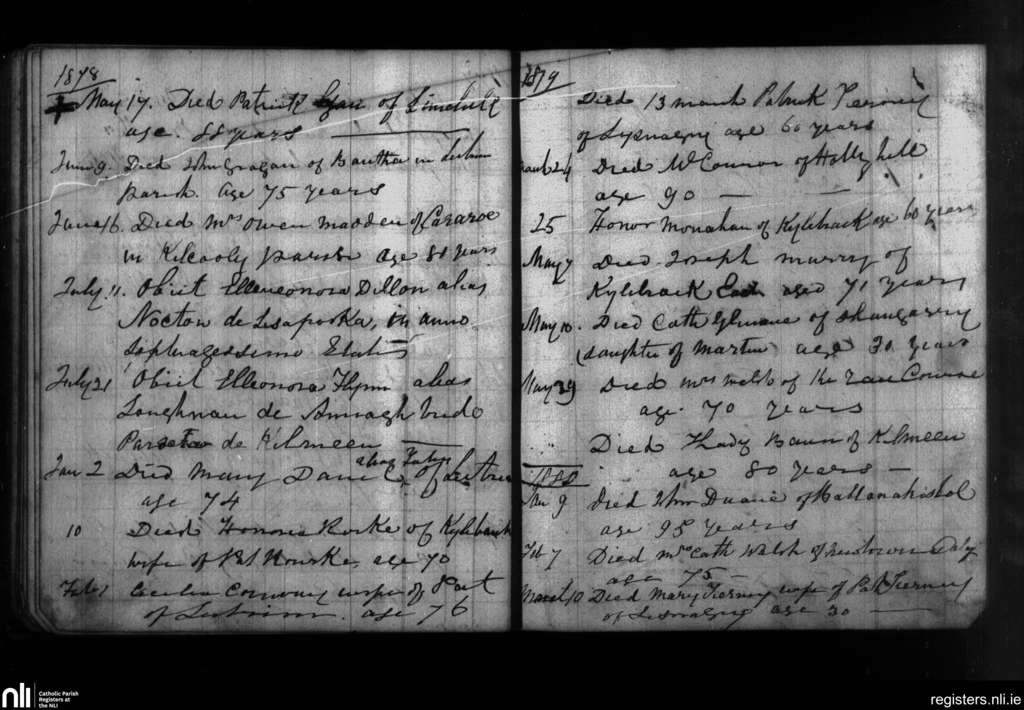 1878
May 17. Died Patrick Egan of
age. 88 years
June 9. Died John Gragan of in
parish. age 75 years
June 16. Died Mrs Owen Madden of
in Kilcooly parish age 81 years
July 11. Obiit Elleneonora Dillon alias
Nocton de Lisapooka, in anno
Septuagessimo Etatis
July 21 Obiit Elleonora Flynn alias
Loughnan de Annagh
de Kilmeen
Jan 2 Died Mary alias of
age 74
10 Died Honora Rorke of Kylebrack
wife of Pat Rourke, age 70
Feb 1 Cecelia Conway wife of Pat
of Leitrim. age 76
1879
Died 13 march Patrick Tierney
of age 60 years
March 24 Died McConnor of Hollyhill
age 90
25 Honor Monahan of Kylebrack age 60 years
May 7 Died Joseph murry of
Kylebrack aged 71 years
May 10. Died Cath of
(daughter of Martin age 30 years
May 29 Died mrs welsh of the
age 70 years
Died Thady of Kilmeen
age 80 years
1880
Jan 9 Died John Duane of
age 95 years
Feb 7 Died Mrs Cath Walsh of
age 75
March 10 Died Mary Tierney wife of Pat Tierney
of age 30
nli
Catholic Parish
Registers at
the NLI
registers.nli.ie